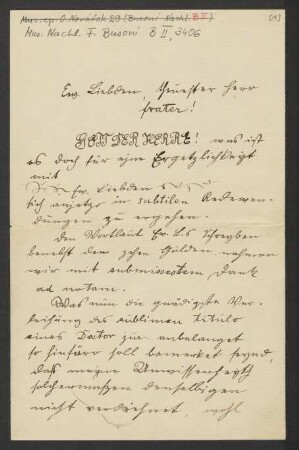 Mus. ep. O. Novácek 29 (Busoni-Nachl. B II)
[1]
Mus. Nachl. F. Busoni B II, 3406
Ew. Liebden, theuester Herr
frater!
GOTT DER HERRE! was ist
es doch für eine Ergetzlichkeyt
mit
Ew. Liebden
sich anjetzo in subtilen Redewen-
dungen zu ergehen.
Den Wortlaut Ew. L.s Schreyben
benebst den zehn Gülden nehmen
wir mit submissestem Dank
ad notam.
Was nun die gnädigste Ver-
leihung des sublimen titulo
eines Doctor zu anbelanget
so hinfüro soll bemerket seynd,
dass meyne Unwissenheyth
solchermassen denselbigen
nicht verdienet, wohl